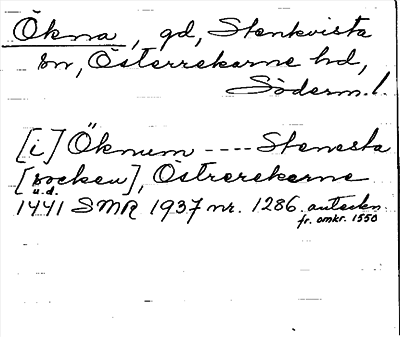 Ökna, gd, Stenkvista
sn, Österrekarne hd,
Söderm. l.
[i] Öknum ---- Stenesta
[socken], Östrerekerne
u.d.
1441 SMR 1937 nr. 1286. anteckn.
fr. omkr. 1550